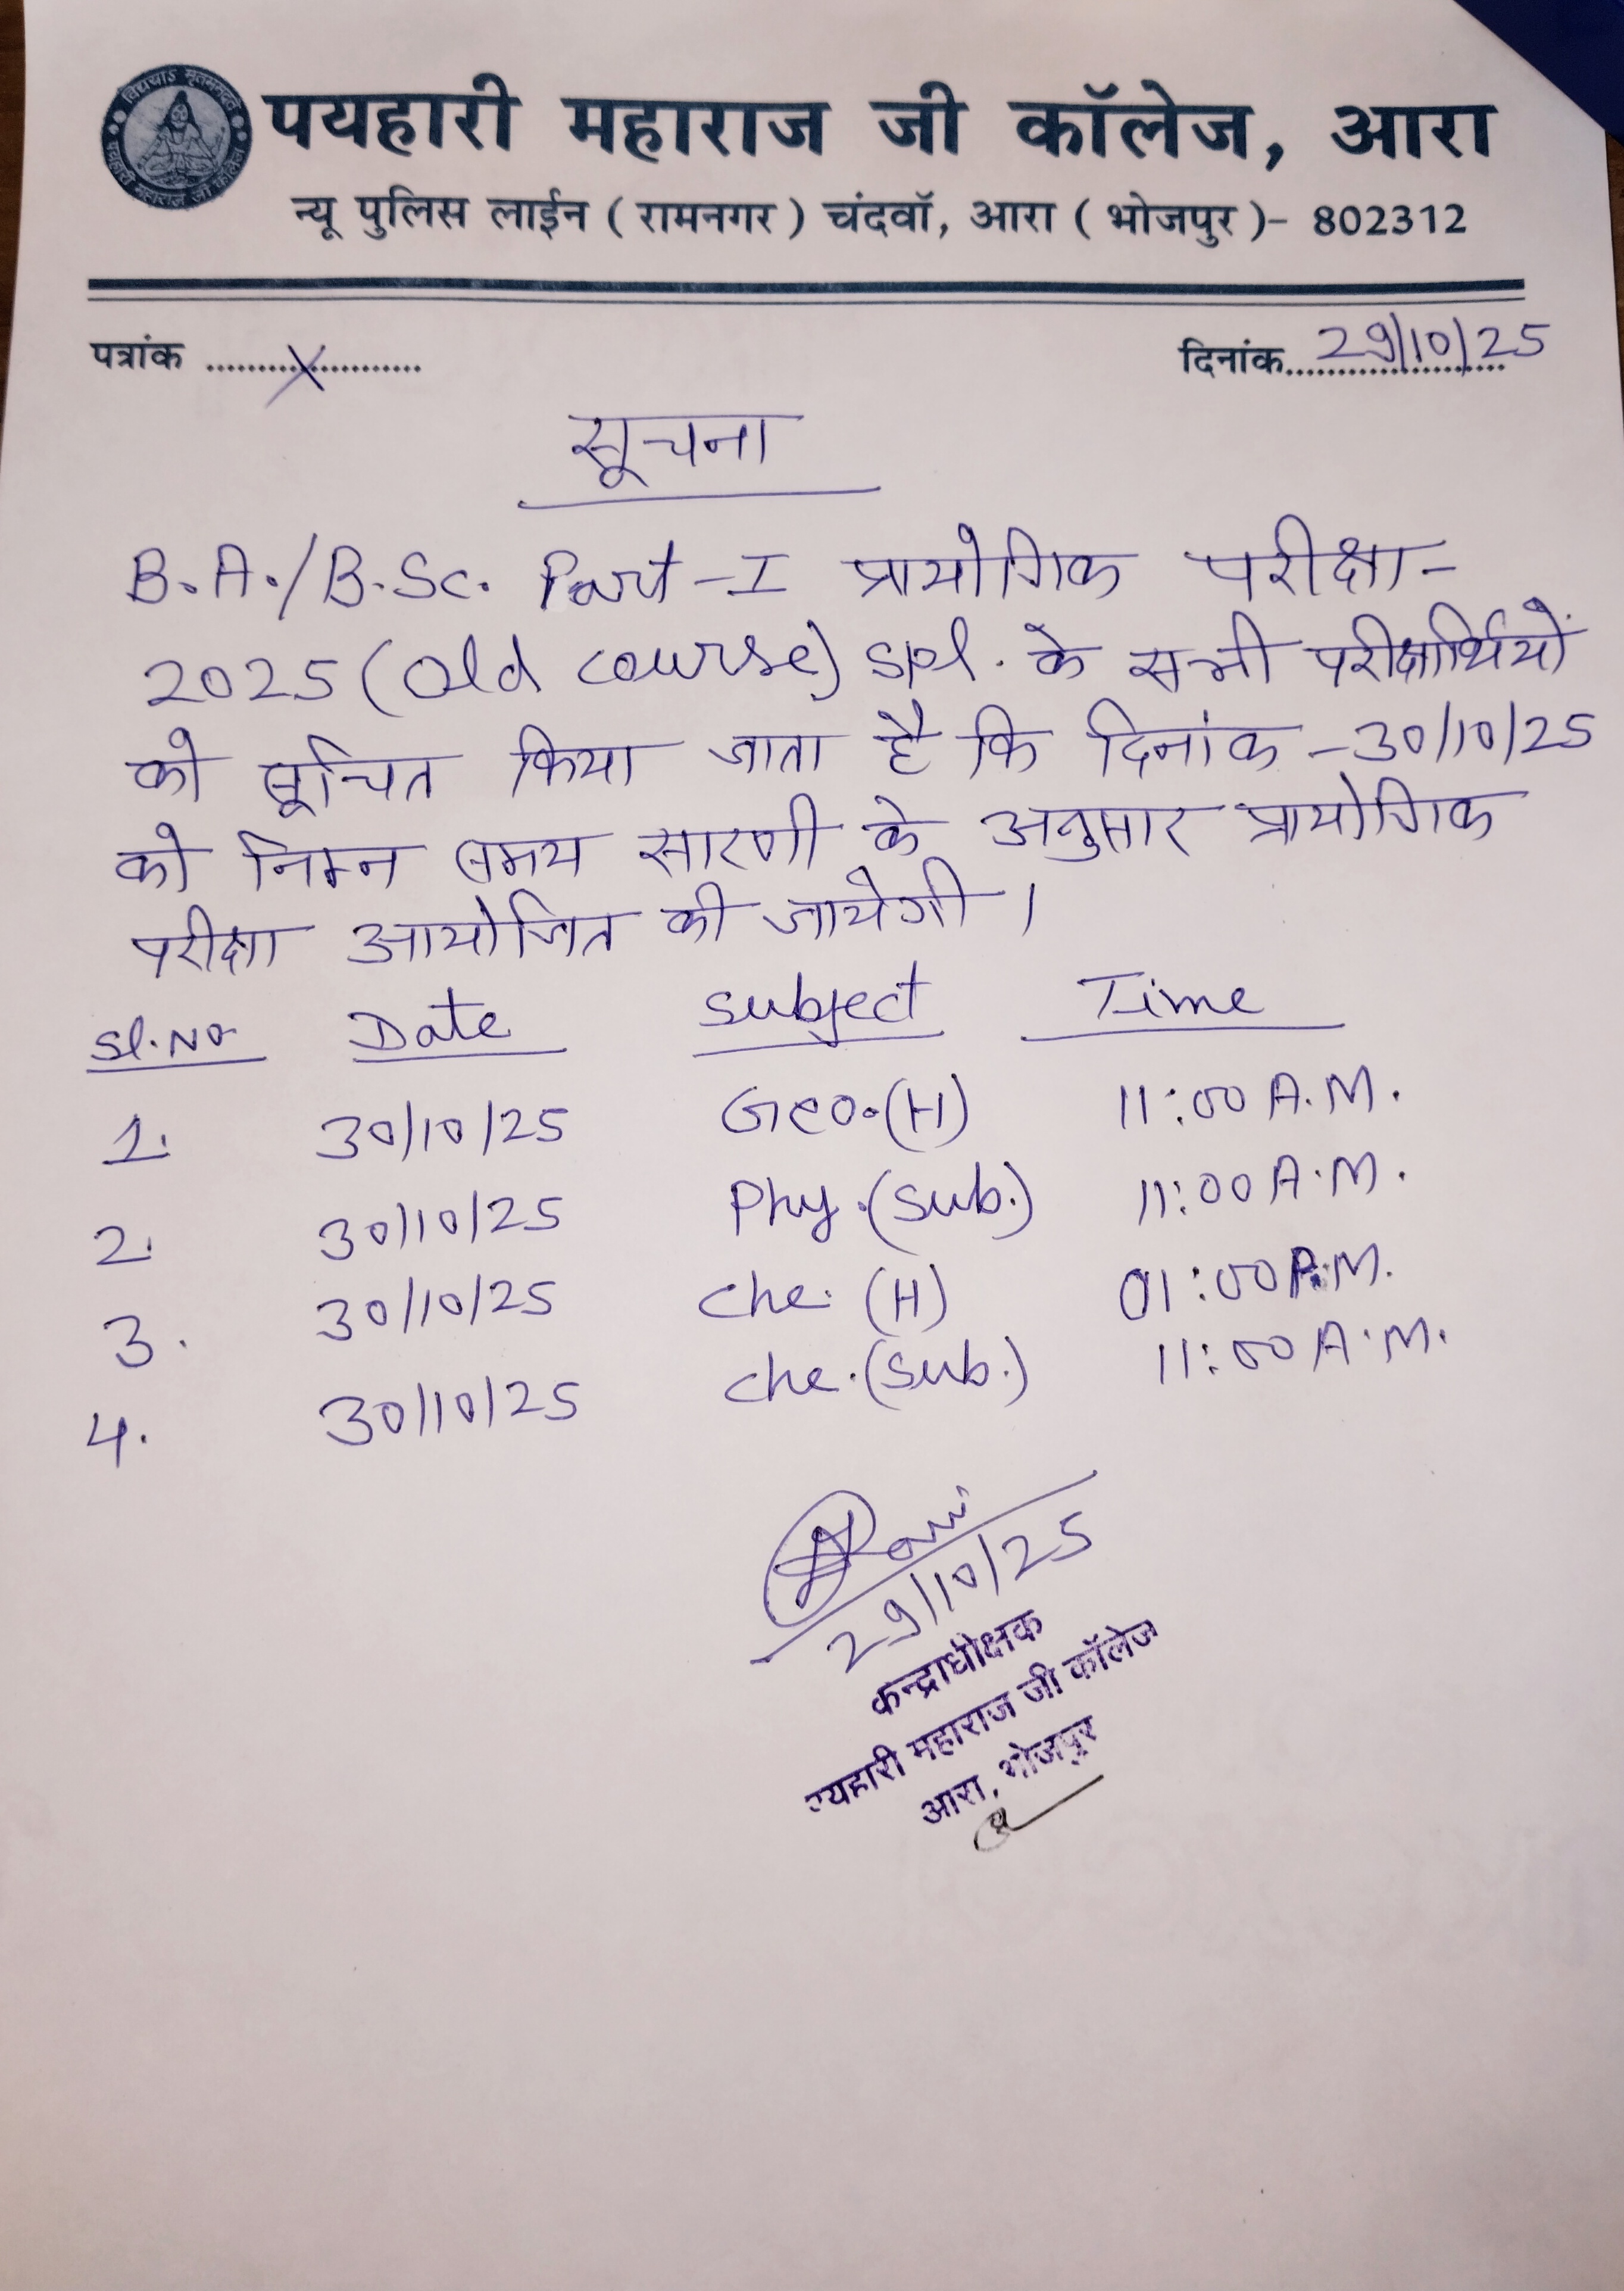 विद्ययाऽमृतमश्नुते
पयहारी महाराज जी कॉलेज
पयहारी महाराज जी कॉलेज, आरा
न्यू पुलिस लाईन ( रामनगर ) चंदवॉ, आरा ( भोजपुर )- 802312
पत्रांक ..........X..........
दिनांक 29/10/25
सूचना
B.A./B.Sc. Part-I प्रायोगिक परीक्षा-
2025 (Old course) spl. के सभी परीक्षार्थियों
को सूचित किया जाता है कि दिनांक -30/10/25
को निम्न समय सारणी के अनुसार प्रायोगिक
परीक्षा आयोजित की जायेगी ।
Sl.No Date Subject Time
1. 30/10/25 Geo.(H) 11:00 A.M.
2. 30/10/25 Phy.(Sub.) 11:00 A.M.
3. 30/10/25 Che. (H) 01:00 P.M.
4. 30/10/25 Che.(Sub.) 11:00 A.M.
29/10/25
केन्द्राधीक्षक
पयहारी महाराज जी कॉलेज
आरा, भोजपुर